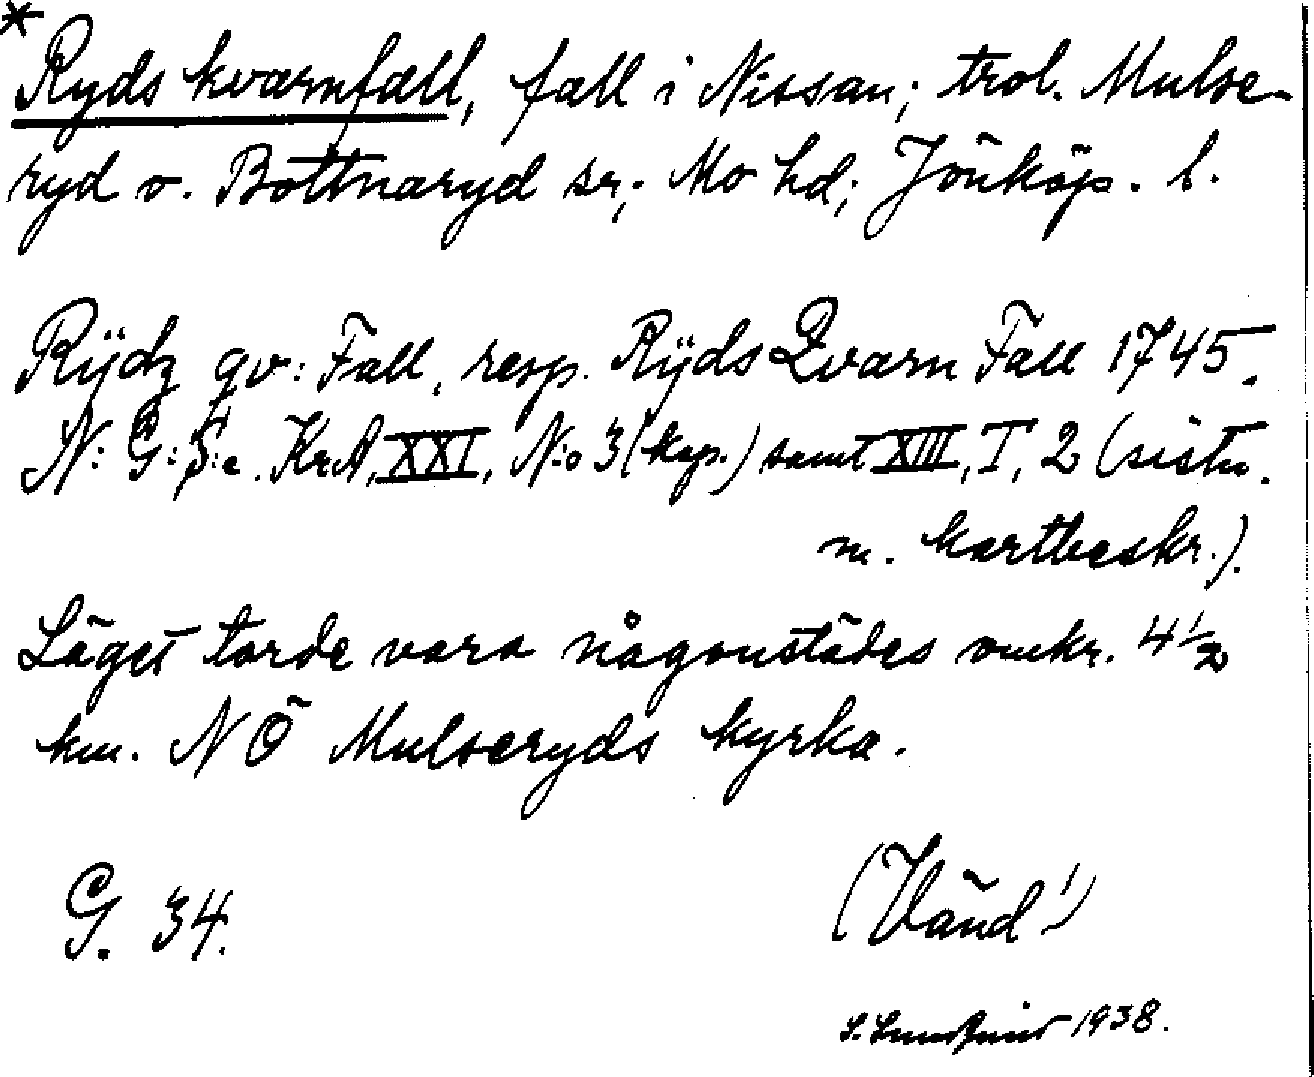 * Ryds kvarnfall, fall i Nissan; trol. Mulse-
ryd o. Bottnaryd sr; Mo hd; Jönköp. l.
Rÿdz qv: Fall, resp. Rÿds Qvarn Fall 1745.
N: G: S:e. KrA, XXI, N:o 3 (kop.) samt XIII, I, 2 (sistn.
m. kartbeskr.).
Läget torde vara någonstädes omkr. 4 1/2
km. NÖ Mulseryds kyrka.
G. 34.
(Vänd!)
1938.